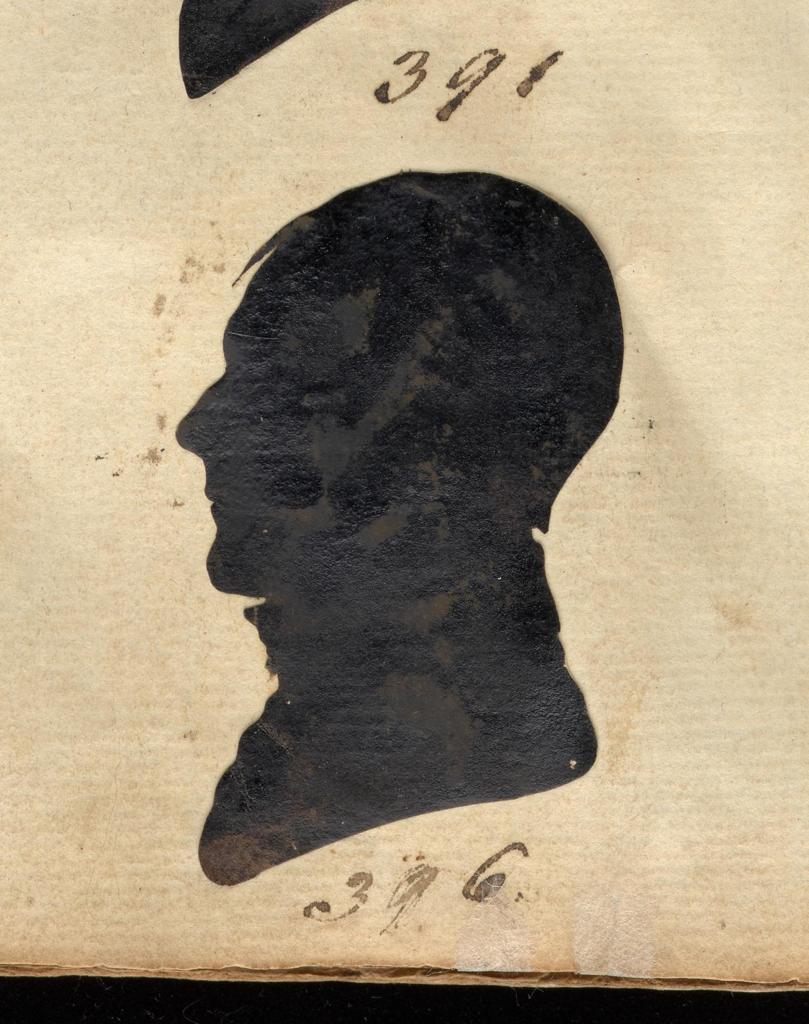 391
396.